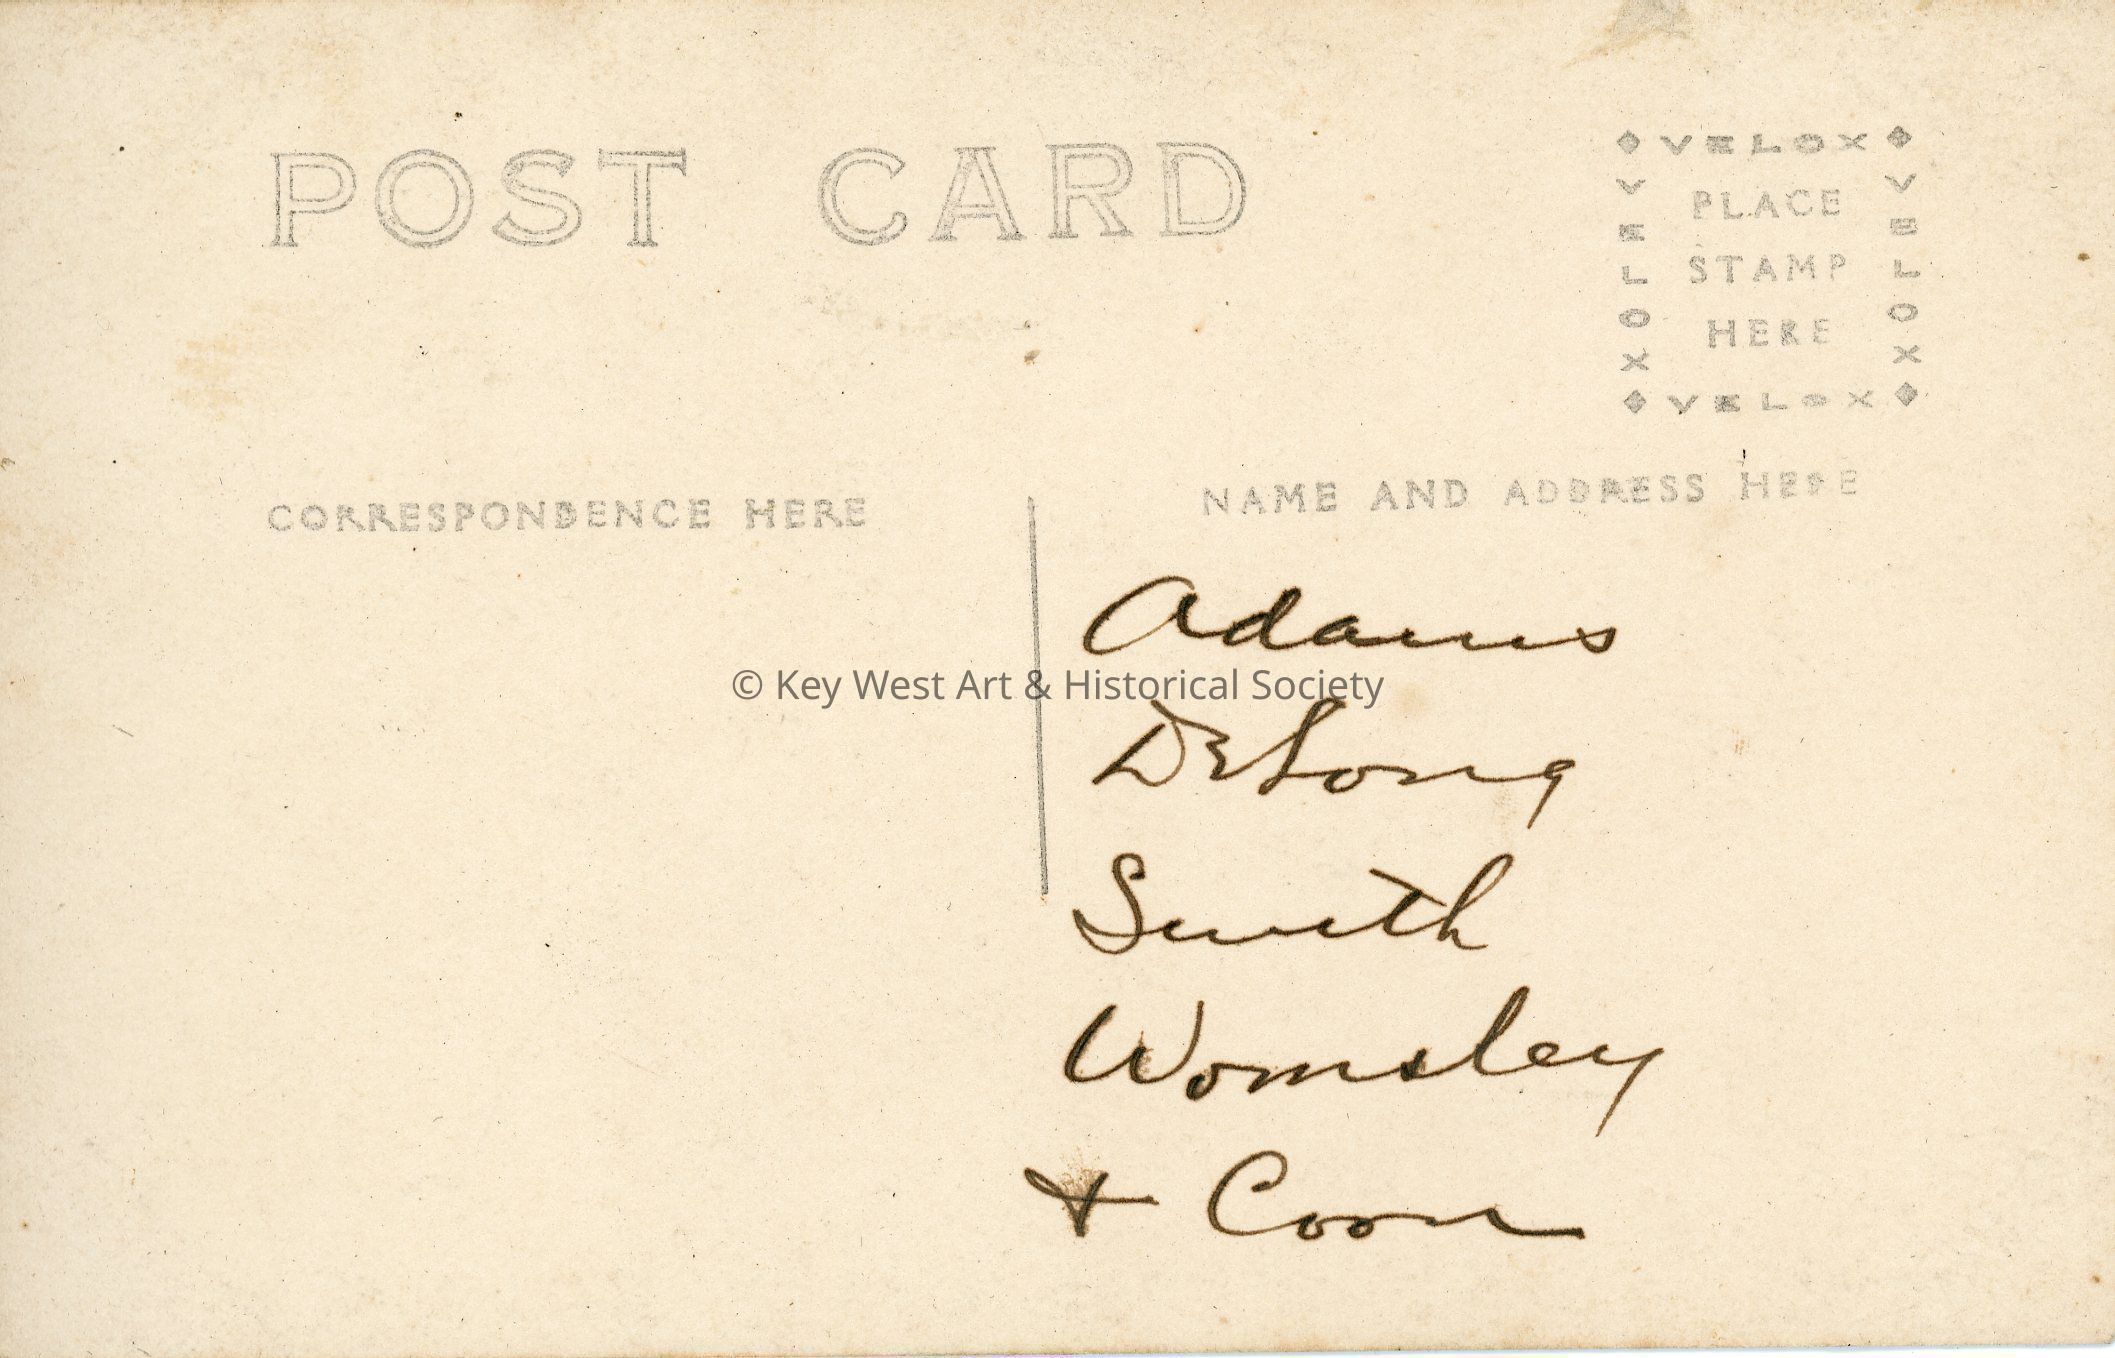 POST CARD
VELOX
VELOX
PLACE
STAMP
HERE
VELOX
VELOX
CORRESPONDENCE HERE
NAME AND ADDRESS HERE
Adams
© Key West Art & Historical Society
DeLong
Smith
Womsley
+ Coon